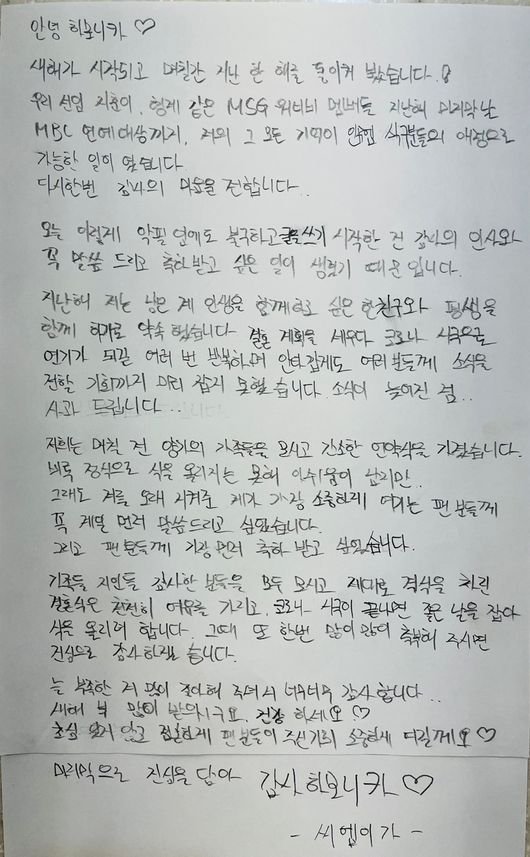 안녕 하모니카 ♡
새해가 시작되고 며칠간 지난 한 해를 돌이켜 봤습니다.
우리 선임 지훈이, 형제 같은 MSG 워너비 멤버들 지난해 마지막날
MBC 연예대상까지, 저의 그 모든 기억이 식구분들의 애정으로
가능한 일이 였습니다.
다시한번 감사의 마음을 전합니다..
오늘 이렇게 악필 임에도 불구하고 글쓰기 시작한 건 감사의 인사와
꼭 말씀 드리고 축하 받고 싶은 일이 생겼기 때문입니다.
지난해 저는 남은 제 인생을 함께하고 싶은 한친구와 평생을
함께 하기로 약속 했습니다. 결혼 계획을 세우다 코로나 시국으로
연기가 되길 여러 번 반복하며 안타깝게도 여러분들께 소식을
전할 기회까지 미리 잡지 못했습니다. 소식이 늦어진 점..
사과 드립니다...
저희는 며칠 전 양가의 가족들을 모시고 간소한 언약식을 가졌습니다.
비록 정식으로 식을 올리지는 못해 아쉬움이 남지만..
그래도 저를 오래 지켜준 제가 가장 소중하게 여기는 팬 분들께
꼭 제일 먼저 말씀드리고 싶었습니다.
그리고 팬분들께 가장 먼저 축하 받고 싶었습니다.
가족들 지인들 감사한 분들을 모두 모시고 제대로 격식을 차린
결혼식은 천천히 여유를 가지고, 코로나 시국이 끝나면 좋은 날을 잡아
식을 올리려 합니다. 그때 또 한번 많이 많이 축복해 주시면
진심으로 감사하겠습니다.
늘 부족한 저 많이 좋아해 주셔서 너무너무 감사합니다..
새해 복 많이 받으시구요, 건강 하세요 ♡
초심 잃지 않고 팬분들이 주신거희 소중하게 여길께요 ♡
마지막으로 진심을 담아 감사하모니카 ♡
- 씨엠이가 -